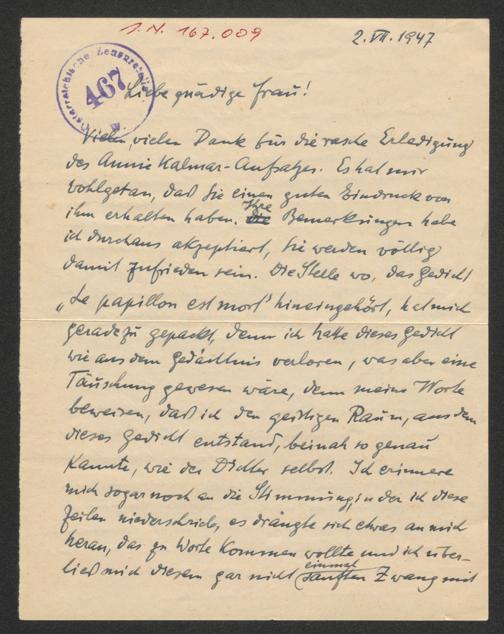 I.N. 167.009
2.VII.1947
Österreichische Zensurstelle
467
W.
Liebe gnädige Frau!
Vielen, vielen Dank für die rasche Erledigung
des Annie Kalmar-Aufsatzes. Es hat mir
wohlgetan, daß Sie einen guten Eindruck von
ihm erhalten haben. Die Ihre Bemerkungen habe
ich durchaus akzeptiert, Sie werden völlig
damit zufrieden sein. Die Stelle wo, das Gedicht
„Le papillon est mort" hineingehört, hat mich
geradezu gepackt, denn ich hatte dieses Gedicht
wie aus dem Gedächtnis verloren, was aber eine
Täuschung gewesen wäre, denn meine Worte
beweisen, daß ich den geistigen Raum, aus dem
dieses Gedicht entstand, beinah so genau
kannte, wie der Dichter selbst. Ich erinnere
mich sogar noch an die Stimmung, in der ich diese
Zeilen niederschrieb, es drängte sich etwas an mich
heran, das zu Worte kommen wollte und ich über-
ließ mich diesem gar nicht einmal sanften Zwang mit